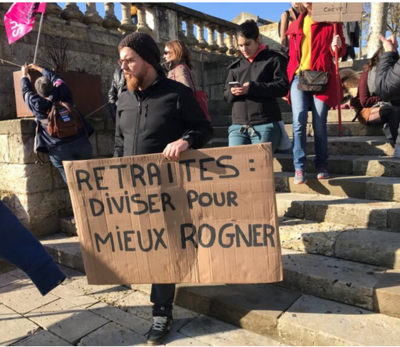 RETRAITES :
DIVISER POUR
MIEUX ROGNER